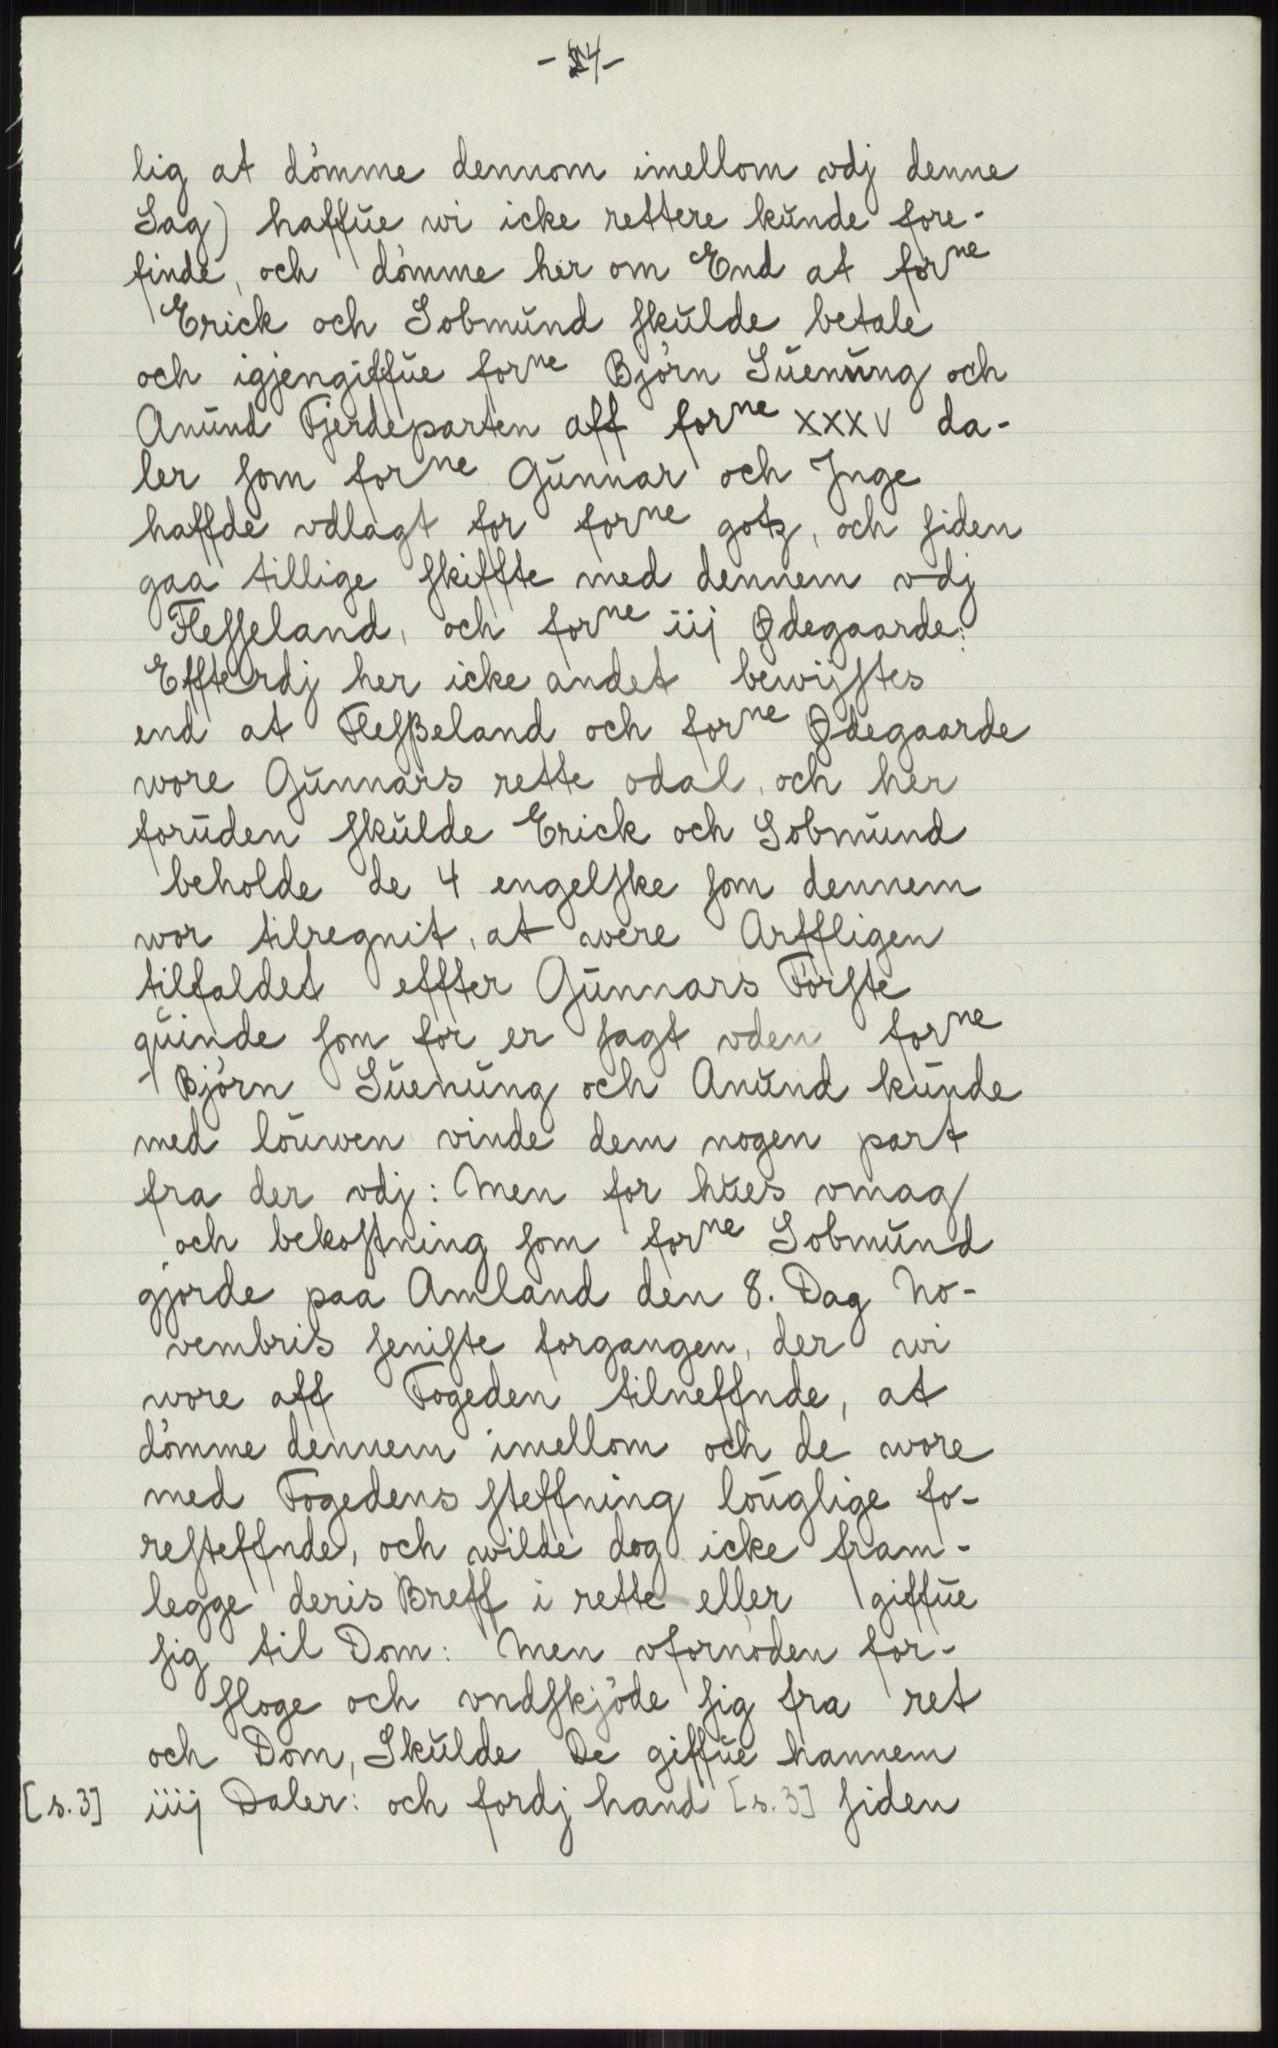 - 24 -
lig at dömme dennom imellom vdj denne
Sag) haffŭe wi icke rettere kŭnde fore-
finde, och dömme her om End at forne
Erick och Sobmŭnd skŭlde betale
och igjengiffŭe forne Björn Sŭenŭng och
Anŭnd Fjerdeparten aff forne xxxv da-
ler som forne Gŭnnar och Inge
haffde vdlagt for forne gotz, och siden
gaa tillige skiffte med dennem vdj
Flesseland, och forne iij Ødegaarde:
Effterdj her icke andet bewijstes
end at Flesßeland och forne Ødegaarde
wore Gŭnnars rette odal, och her
forŭden skŭlde Erick och Sobmŭnd
beholde de 4 engelske som dennem
wor tilregnit, at were Arffligen
tilfaldet effter Gŭnnars Förste
qŭinde som för er sagt vden forne
Björn Sŭenŭng och Anŭnd kŭnde
med loŭwen vinde dem nogen part
fra der vdj: Men for hŭes vmag
och bekostning som forne Sobmŭnd
gjorde paa Amland den 8. Dag No-
vembris seniste forgangen, der wi
wore aff Fogeden tilneffnde, at
dömme dennem imellom och de wore
med Fogedens steffning loŭglige fo-
resteffnde, och wilde dog icke fram-
legge deris Breff i rette eller giffŭe
sig til Dom: Men vfornöden for-
sloge och vndskjöde sig fra ret
och Dom, Skŭlde De giffŭe hannem
[s.3] iiij Daler: och fordj hand [s.3] siden